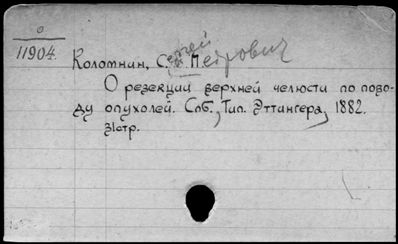 0
11904.
Коломнин, Сергей Петрович
О резекции верхней челюсти по пово-
ду опухолей. Спб., Тип. Эттингера, 1882.
31стр.